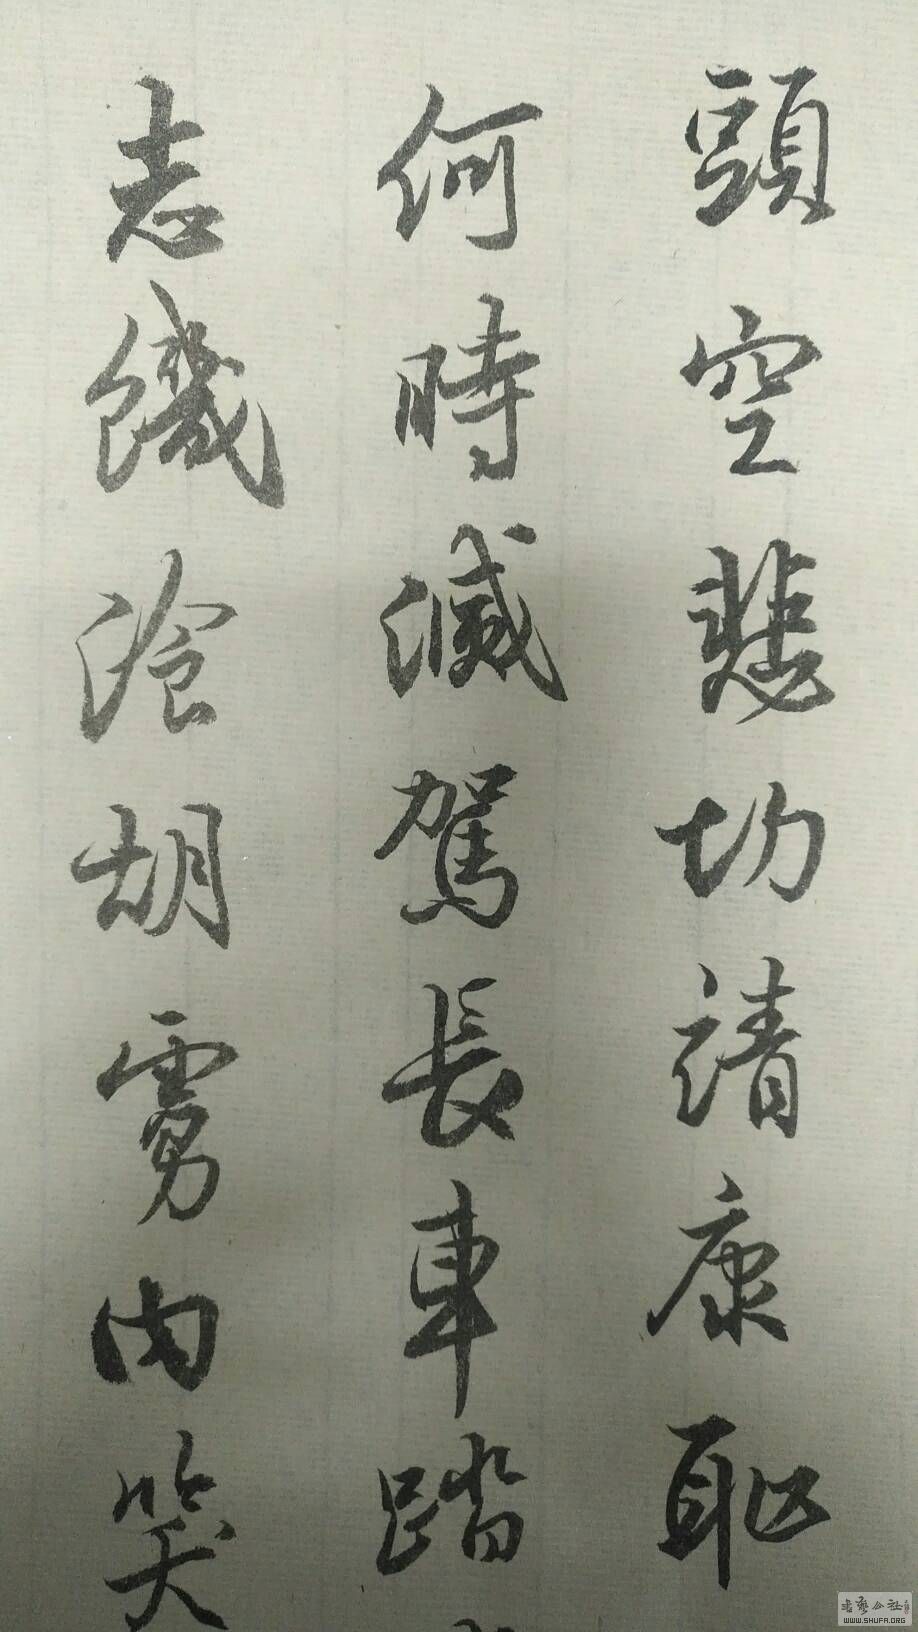 頭空悲切靖康耻
何時滅駕長車踏
志饑湌胡虜肉笑
书艺公社
WWW.SHUFA.ORG